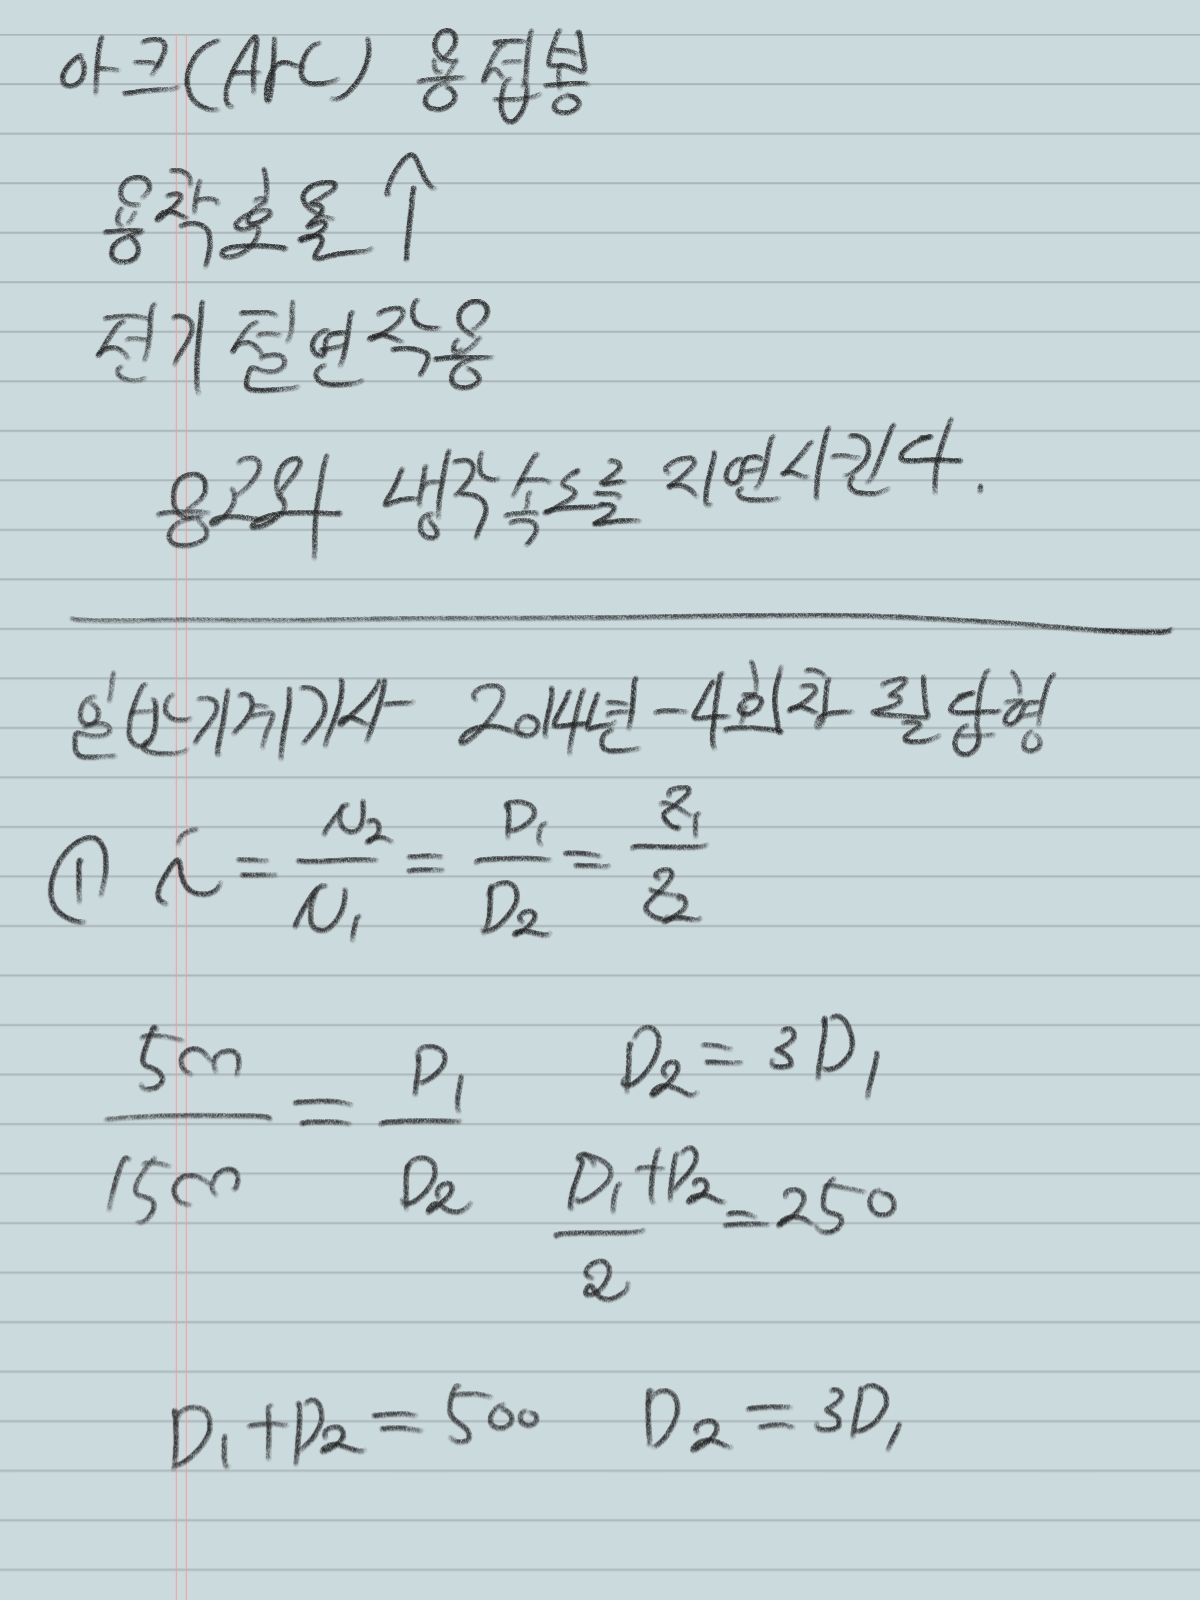 아크(Arc) 용접봉
용착효율 ↑
전기 절연작용
용융의 냉각속도를 지연시킨다.
일반기계기사 2014년-4회차 필답형
① i = N₂/N₁ = D₁/D₂ = Z₁/Z₂
500/1500 = D₁/D₂ D₂ = 3D₁
(D₁+D₂)/2 = 250
D₁+D₂ = 500 D₂ = 3D₁